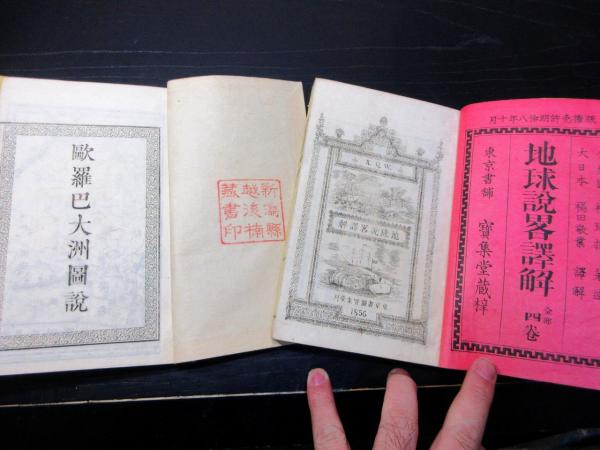 歐羅巴大洲圖說
新潟縣
越後楠
藏書印
地球说畧譯解
1856
版權免許明治八年十月
大日本 福田敬業 譯解
地球說畧譯解 全部 四卷
東京書舖 寶集堂蔵梓